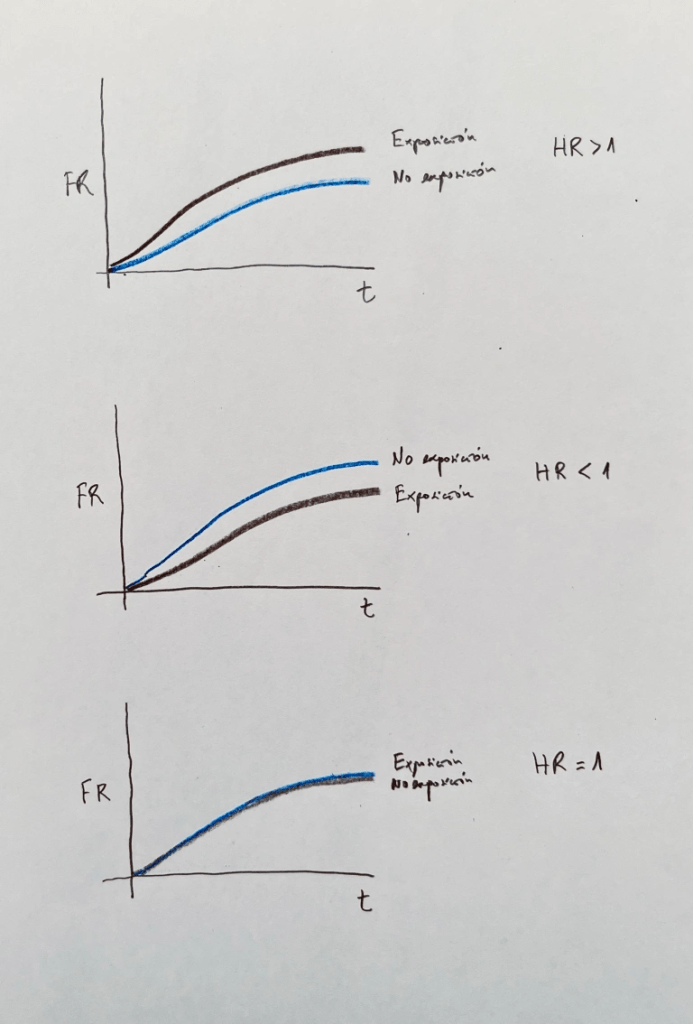 Exposición
HR > 1
FR
No exposición
t
No exposición
HR < 1
FR
Exposición
t
Exposición
HR = 1
No exposición
FR
t